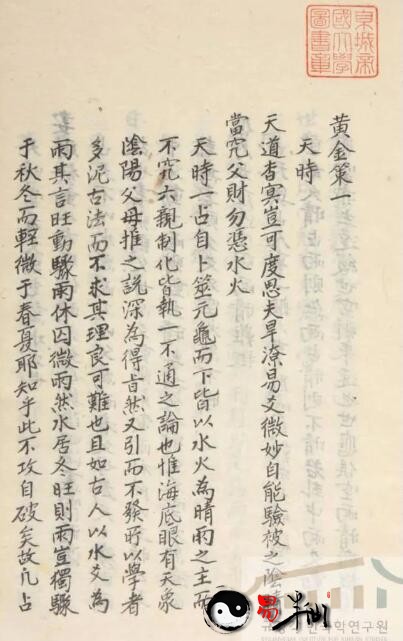 京城帝
國大學
圖書章
黃金策一
天時
天道杳冥豈可度思夫旱潦易爻微妙自能驗被之陰晴
當究父財勿憑水火
天時一占自卜筮元龜而下皆以水火為晴雨之主而
不究六親制化皆執一不通之論也惟海底眼有天象
陰陽父母推之說深為得旨然又引而不發所以學者
多泥古法而不求其理良可難也且如古人以水爻為
雨其言旺動驟雨休囚微雨然水居冬旺則雨豈獨驟
于秋冬而輕微于春夏耶知乎此不攻自破矣故凡占
한국학연구원